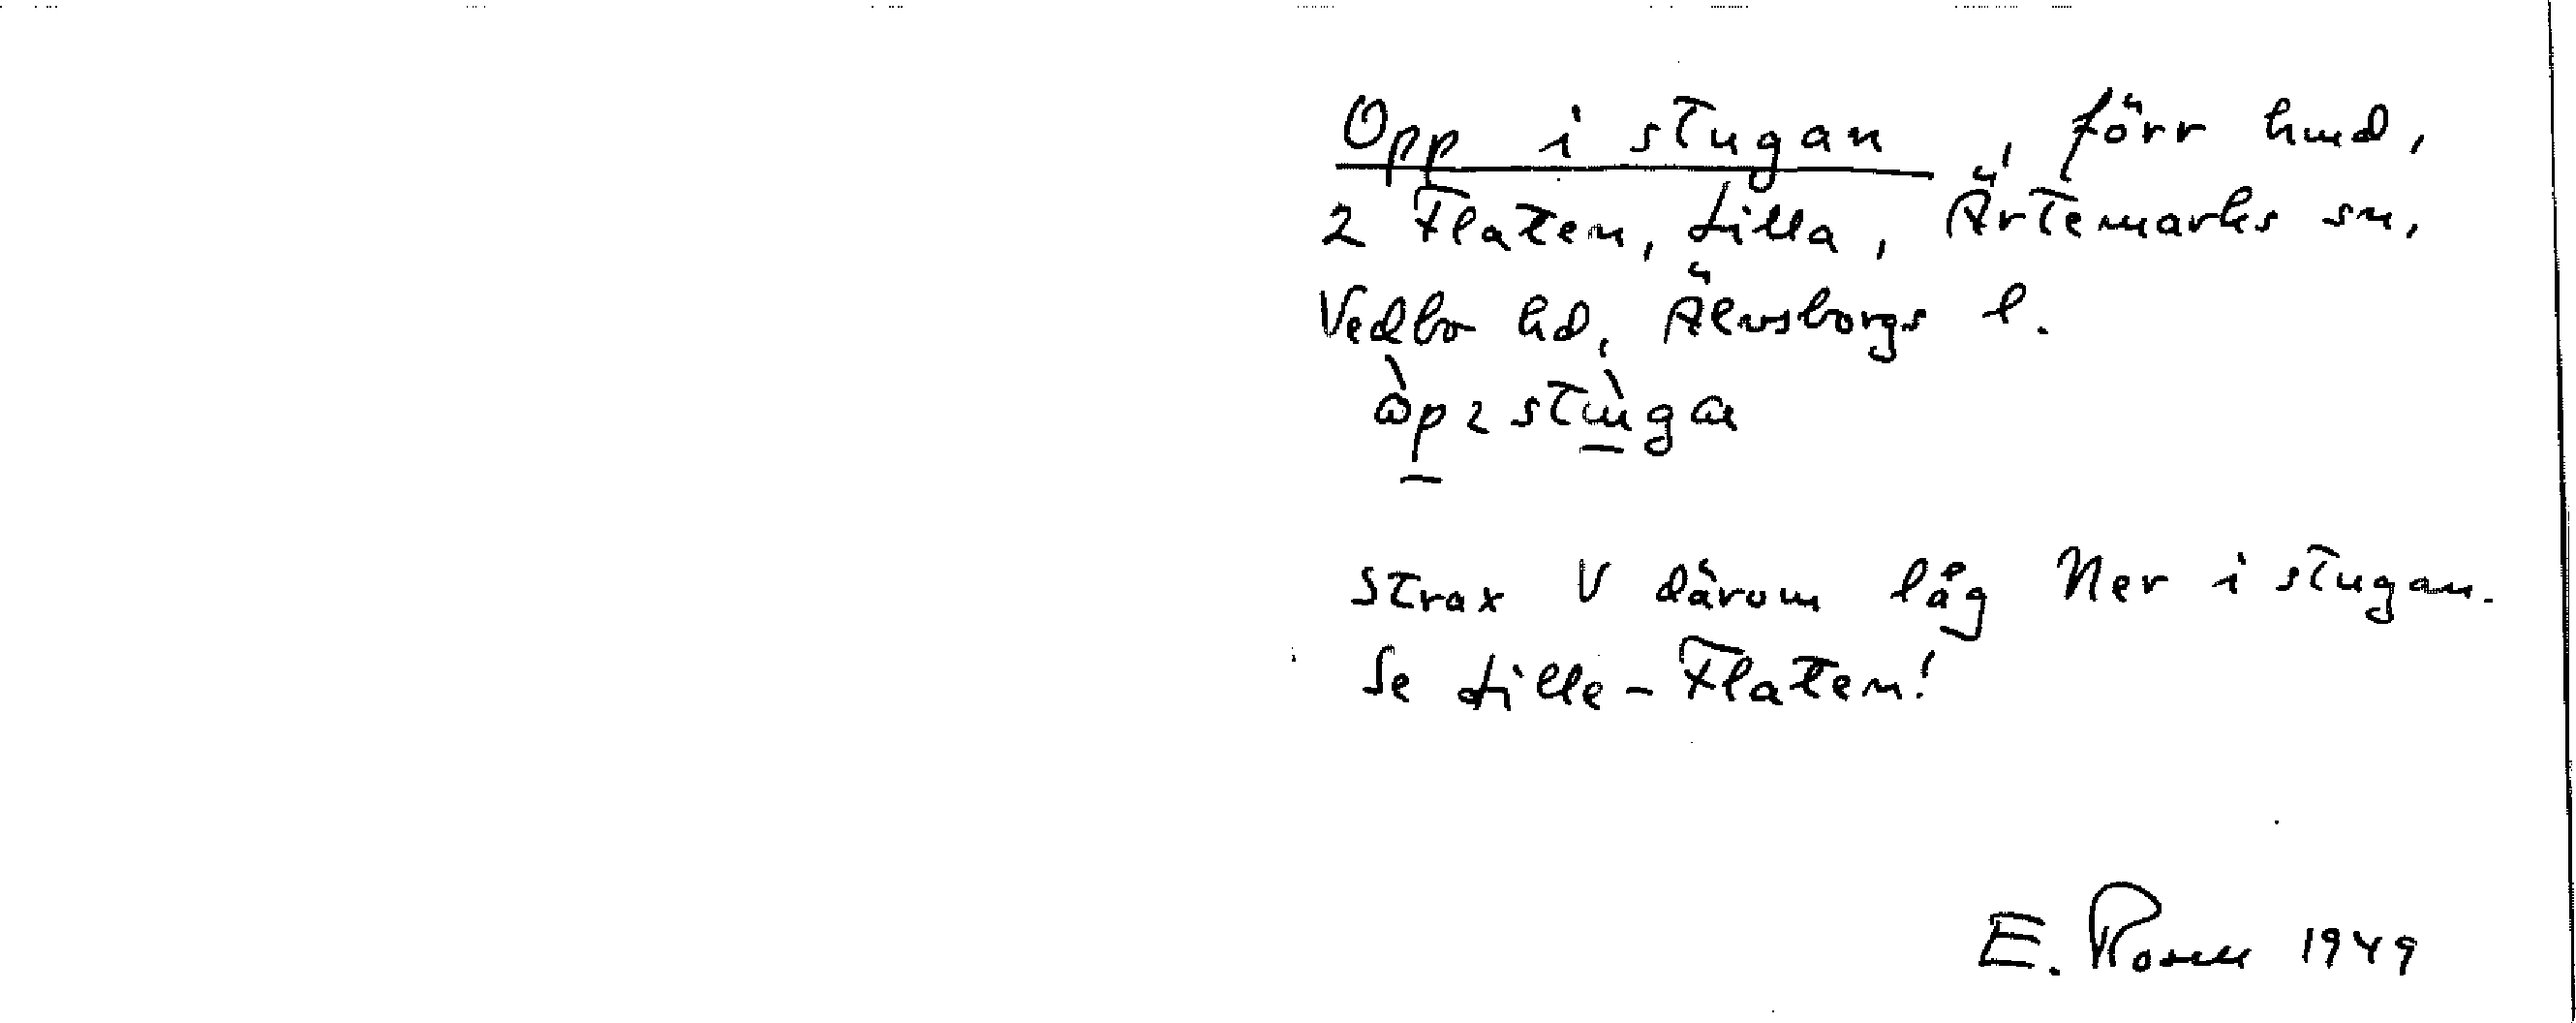 Opp i stugan, förr hmd,
2 Flaten, Lilla, Ärtemarks sn,
Vedbo hd, Älvsborgs l.
Strax V därom låg Ner i stugan.
Se Lille-Flaten!
E. Rosell 1949